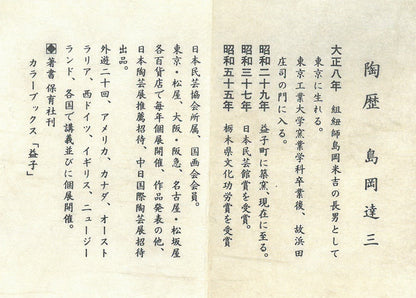 陶歴　島岡達三
大正八年　組紐師島岡米吉の長男として
東京に生れる。
東京工業大学窯業学科卒業後、故浜田
庄司の門に入る。
昭和二十九年　益子町に築窯、現在に至る。
昭和三十七年　日本民芸館賞を受賞。
昭和五十五年　栃木県文化功労賞を受賞
日本民芸協会所属、国画会会員。
東京・松屋、大阪・阪急、名古屋・松坂屋
各百貨店で毎年個展開催、作品発表の他、
日本陶芸展推薦招待、中日国際陶芸展招待
出品。
外遊二十回、アメリカ、カナダ、オースト
ラリア、西ドイツ、イギリス、ニュージー
ランド、各国で講義並びに個展開催。
◆著書 保育社刊
カラーブックス「益子」